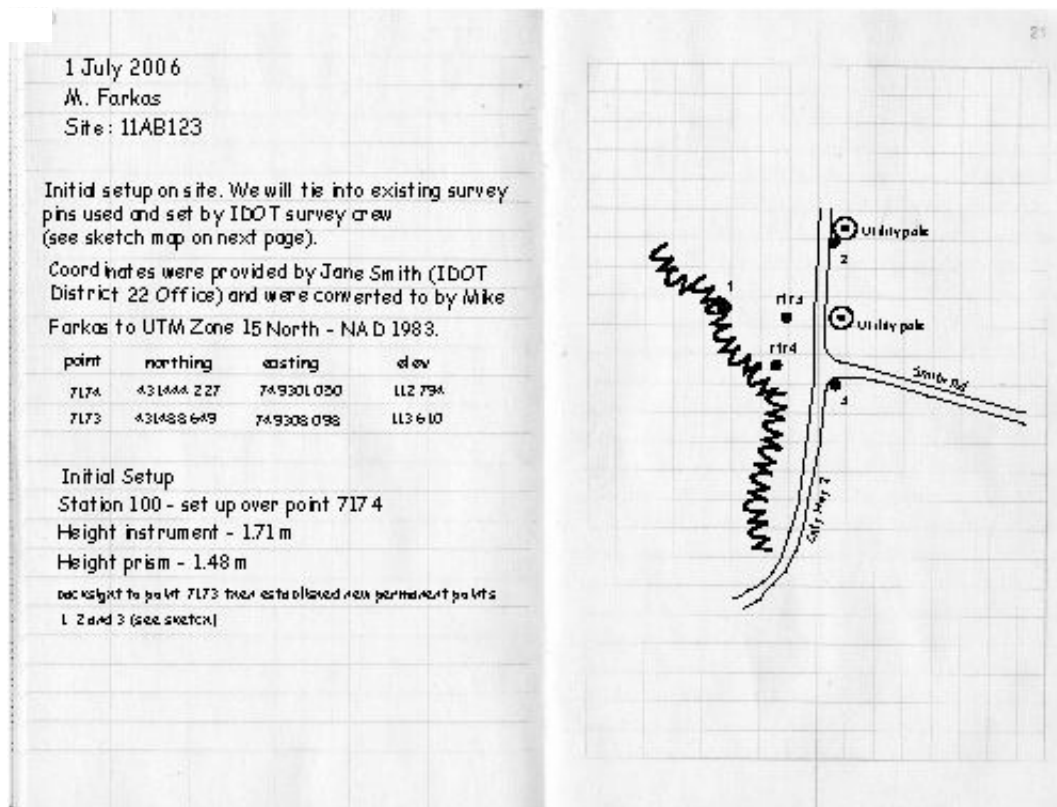 21
1 July 2006
M. Farkas
Site: 11AB123
Initial setup on site. We will tie into existing survey
pins used and set by IDOT survey crew
(see sketch map on next page).
Coordinates were provided by Jane Smith (IDOT
District 22 Office) and were converted to by Mike
Farkas to UTM Zone 15 North - NAD 1983.
point northing easting elev
7174 431444.227 749301.030 112.794
7173 431488.649 749308.098 113.610
Initial Setup
Station 100 - set up over point 7174
Height instrument - 1.71 m
Height prism - 1.48 m
backsight to point 7173 then established new permanent points
1 2 and 3 (see sketch)
Utility pole
2
1
7173
Utility pole
7174
Smith Rd
3
Hwy 2